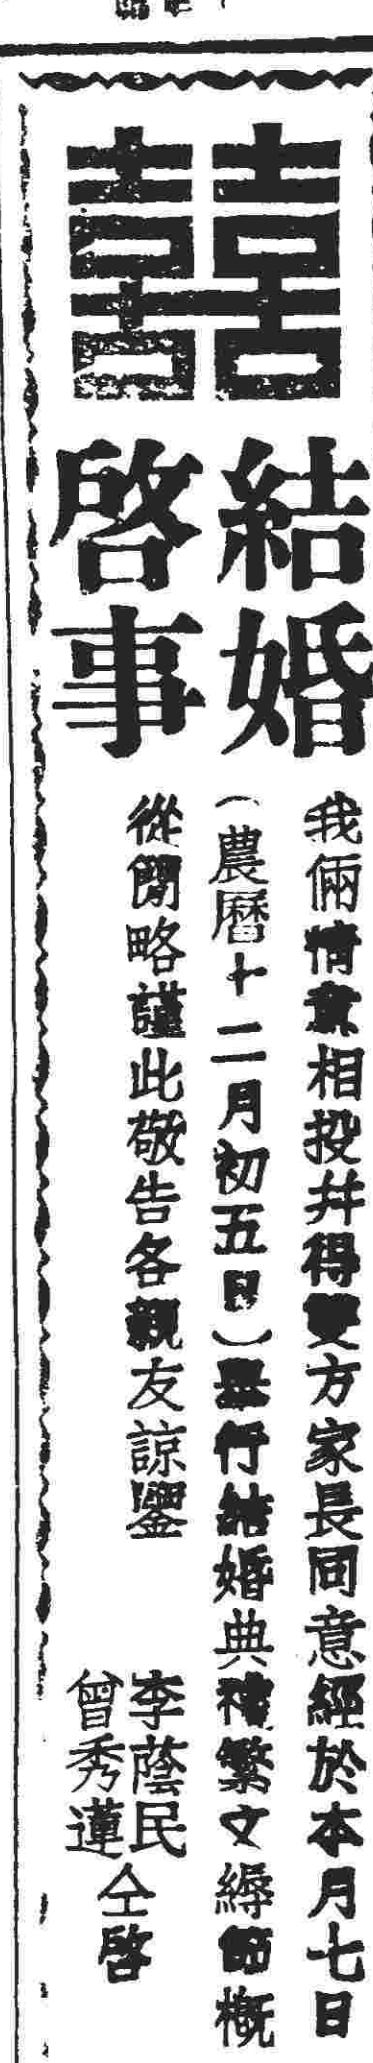 囍
結婚
啓事
我倆情意相投并得雙方家長同意經於本月七日
(農曆十二月初五日)舉行結婚典禮繁文縟節概
從簡略謹此敬告各親友諒鑒
李蔭民
曾秀蓮
仝啓